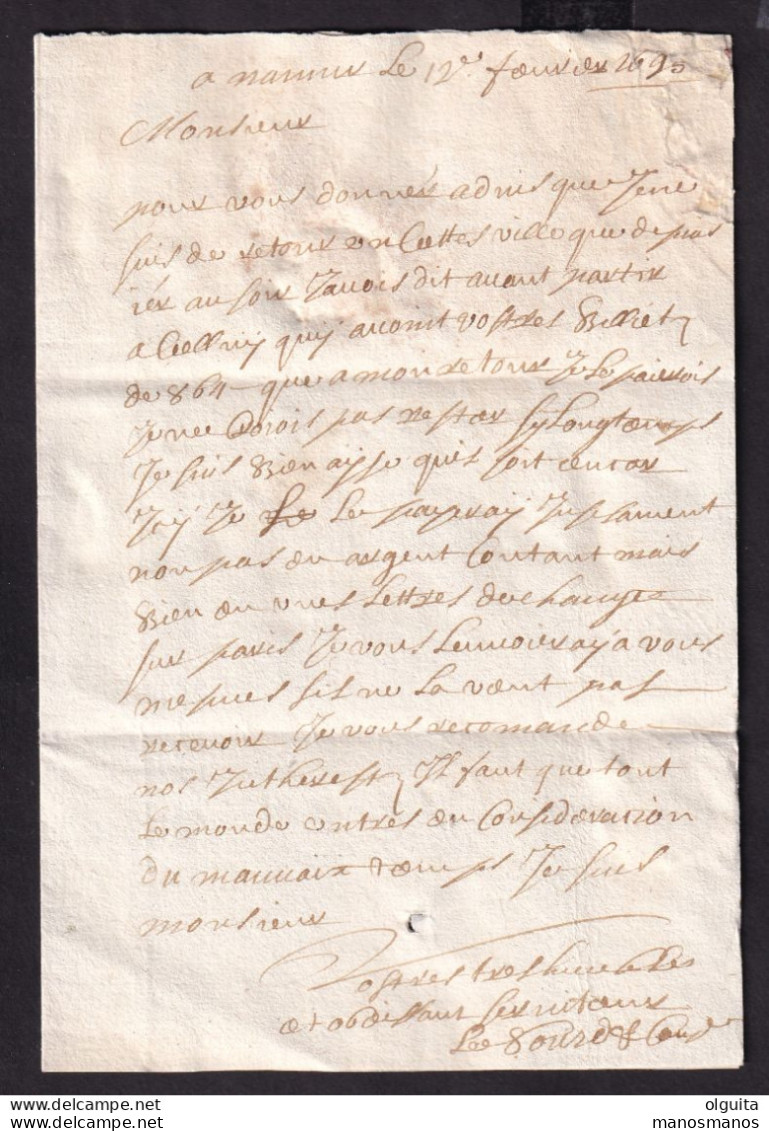 a namur Le 12e feurier 1695
Monsieur
pour vous donner aduis que Je ne
suis de retour en Cettes ville que depuis
ier au soir Jauois dit auant partir
a Celluy quy auoint vostres Billiet
de 864 que a mon retour Je Le paierois
Je ne Cdrois pas restar sy Longtemps
Je suis Bien aysse quil soit encor
Icy Je Le Le payeray
non pas en argent Contant mais
Bien en unes Lettres de change
sur paris Je vous Lenuoieray a vous
mesmes sil ne La veut pas
receuoir Je vous recomande
nos Intherest Il faut que tout
Le monde entres en Consideracion
du mauuaix temps Je suis
monsieur
Vostres tres humbles
et obeissant seruiteur
Le
olguita
manosmanos